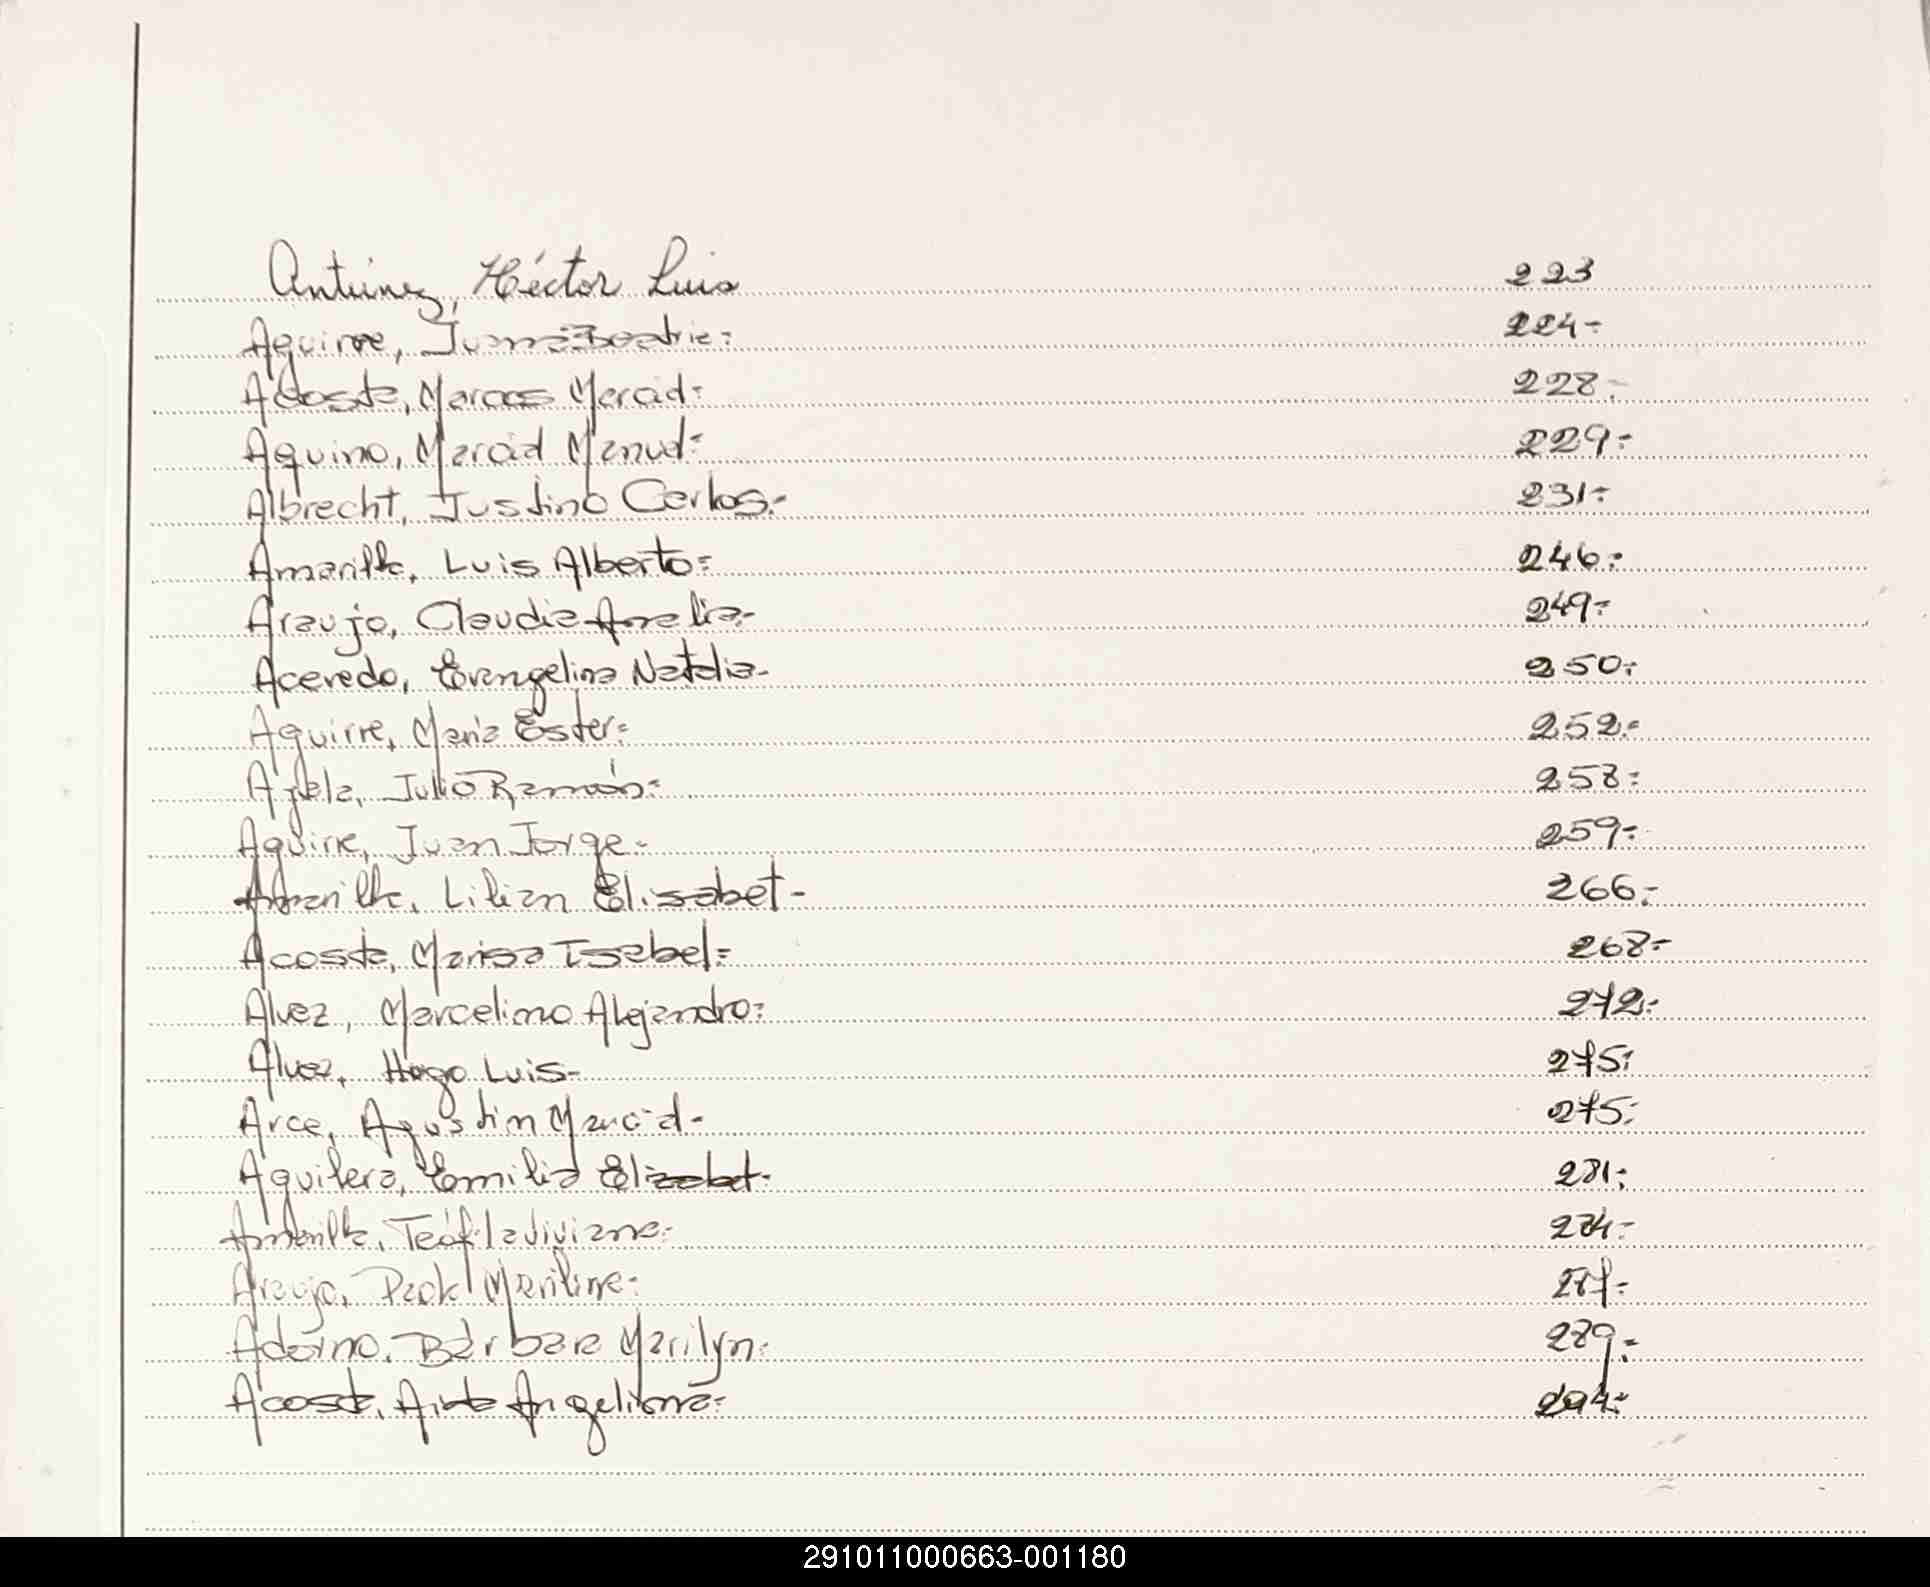 Antúnez, Héctor Luis 223
Aguirre, Juana Beatriz= 224=
Acosta, Marcos Marcial= 228=
Aquino, Marcial Manuel= 229=
Albrecht, Justino Carlos.= 231=
Amarilla, Luis Alberto= 246=
Araujo, Claudia Analia= 249=
Acevedo, Evangelina Natalia- 250=
Aguirre, María Ester= 252=
Ayala, Julio Ramón= 258=
Aguirre, Juan Jorge= 259=
Amarilla, Lilian Elisabet- 266=
Acosta, Marisa Isabel= 268=
Alvez, Marcelino Alejandro= 272=
Alvez, Hugo Luis- 275=
Arce, Agustin Marcial- 275=
Aguilera, Emilia Elizabet- 281=
Amarilla, Teófila Viviana= 284=
Araujo, Paola Mariline= 287=
Adorno, Bárbara Marilyn= 289=
Acosta, Angelina= 294=
291011000663-001180